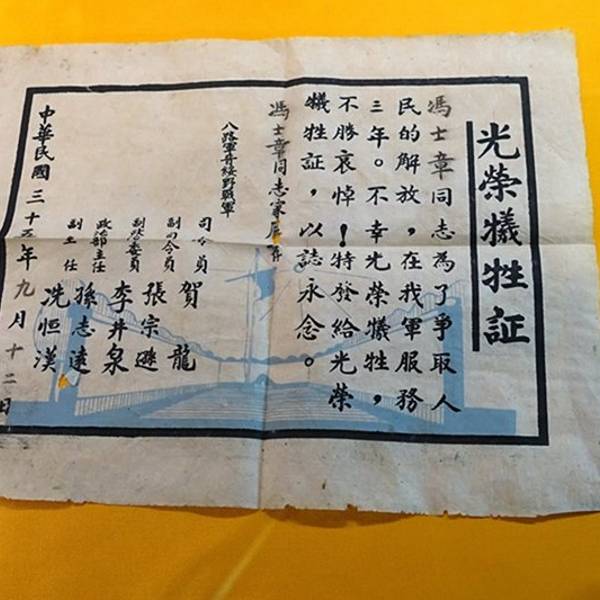 光榮犧牲証
馮士章同志為了爭取人
民的解放，在我軍服務
三年。不幸光榮犧牲，
不勝哀悼！特發給光榮
犧牲証，以誌永念。
馮士章同志家屬存
八路軍晉綏野戰軍
司令員 賀龍
副司令員 張宗遜
副政委員 李井泉
政治部主任 孫志遠
副主任 冼恒漢
中華民國三十五年九月十二日